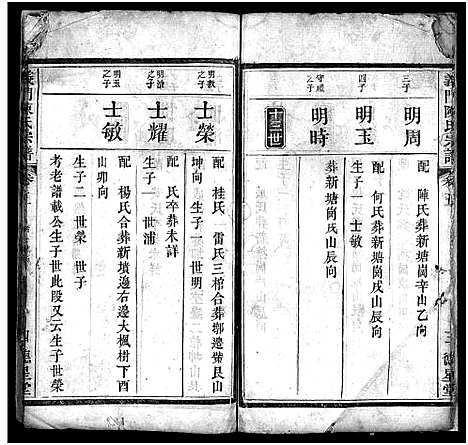 義門陳氏宗譜
三子
明周
配
陳氏合葬新塘崗辛山乙向
四子
明玉
配
何氏葬新塘崗戌山辰向
生子一
士敏
守瑊之子
明時
配
葬新塘崗戌山辰向
十三世
明教之子
士榮
配
桂氏
雷氏三棺合葬鄢邊柴艮山
坤向
生子一
世明
明淮之子
士耀
配
氏卒葬未詳
生子一
世浦
明玉之子
士敏
配
楊氏合葬新墳邊右邊大楓樹下酉
山卯向
生子二
世榮
世子
考老譜載公生子世此段又云生子世榮
義門陳氏宗譜
德星堂